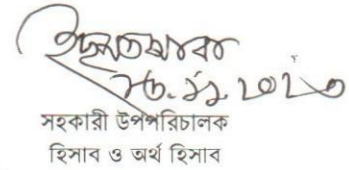 ২৮.১১.২০২৩
সহকারী উপপরিচালক
হিসাব ও অর্থ হিসাব